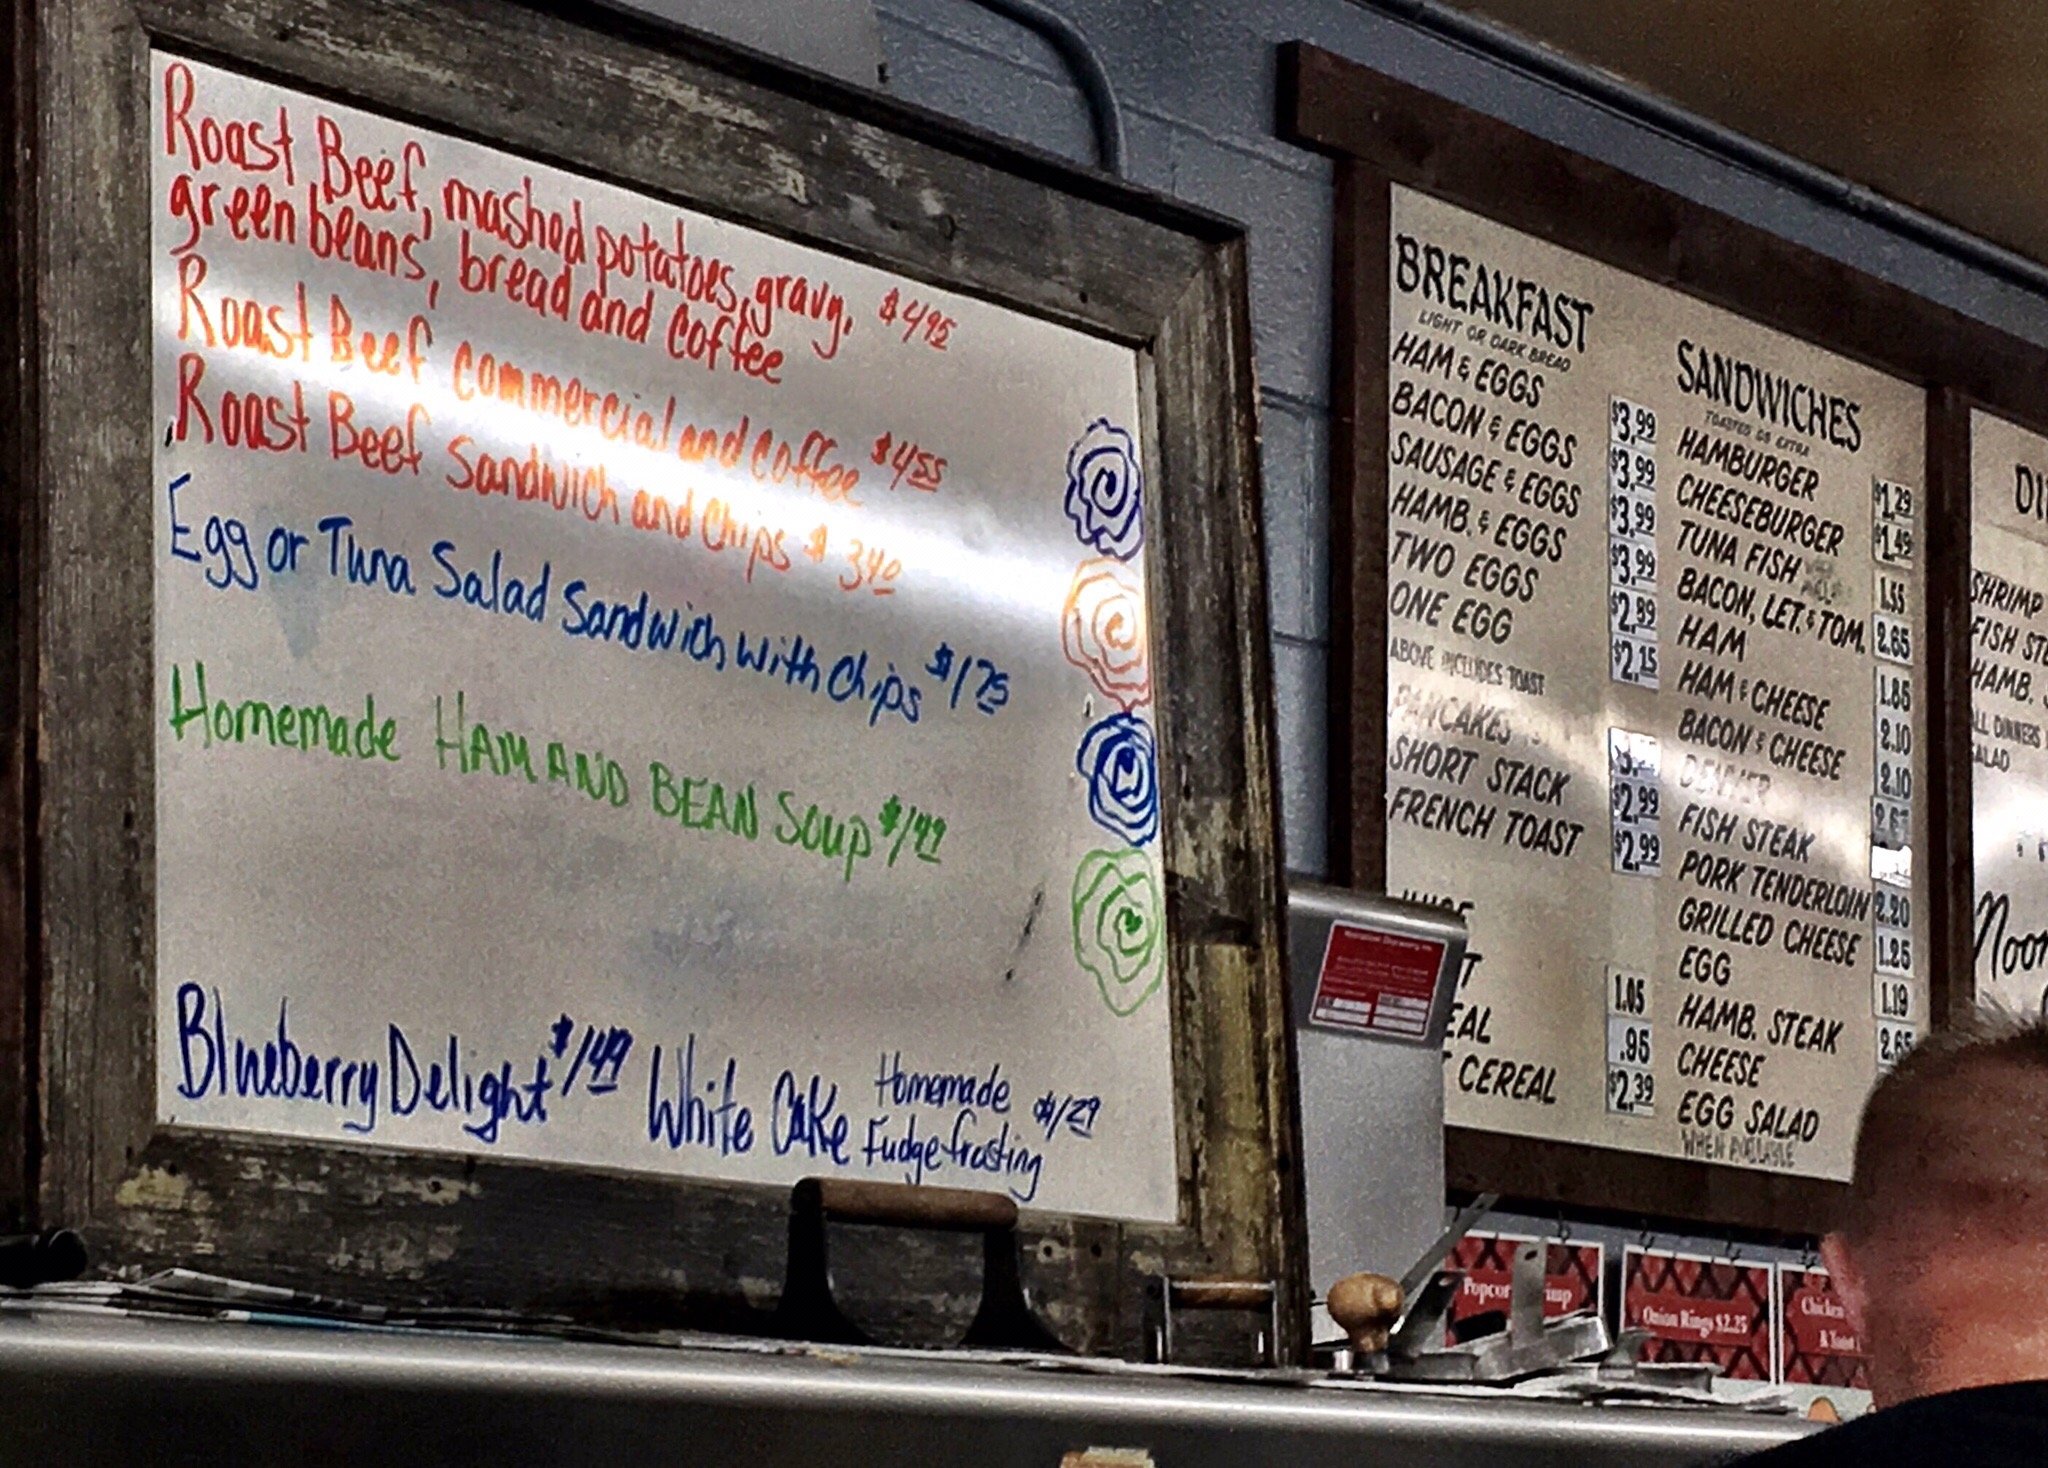 Roast Beef, mashed potatoes, gravy, $4.95
green beans, bread and coffee
Roast Beef commercial and coffee $4.55
Roast Beef Sandwich and Chips $3.40
Egg or Tuna Salad Sandwich with Chips $1.75
Homemade HAM AND BEAN Soup $1.49
Blueberry Delight $1.49 White Cake Homemade $1.29
Fudge frosting
BREAKFAST
LIGHT OR DARK BREAD
HAM & EGGS $3.99
BACON & EGGS $3.99
SAUSAGE & EGGS $3.99
HAMB. & EGGS $3.99
TWO EGGS $2.89
ONE EGG $2.15
ABOVE INCLUDES TOAST
PANCAKES
SHORT STACK $2.99
FRENCH TOAST $2.99
1.05
.95
CEREAL $2.39
SANDWICHES
TOASTED 05 EXTRA
HAMBURGER $1.29
CHEESEBURGER $1.49
TUNA FISH 1.55
BACON, LET. & TOM. 2.65
HAM 1.85
HAM & CHEESE 2.10
BACON & CHEESE 2.10
DENVER
FISH STEAK
PORK TENDERLOIN 2.20
GRILLED CHEESE 1.25
EGG 1.19
HAMB. STEAK 2.65
CHEESE
EGG SALAD
WHEN AVAILABLE
SHRIMP
HAMB.
DINNERS
Onion Rings $2.25
Chicken